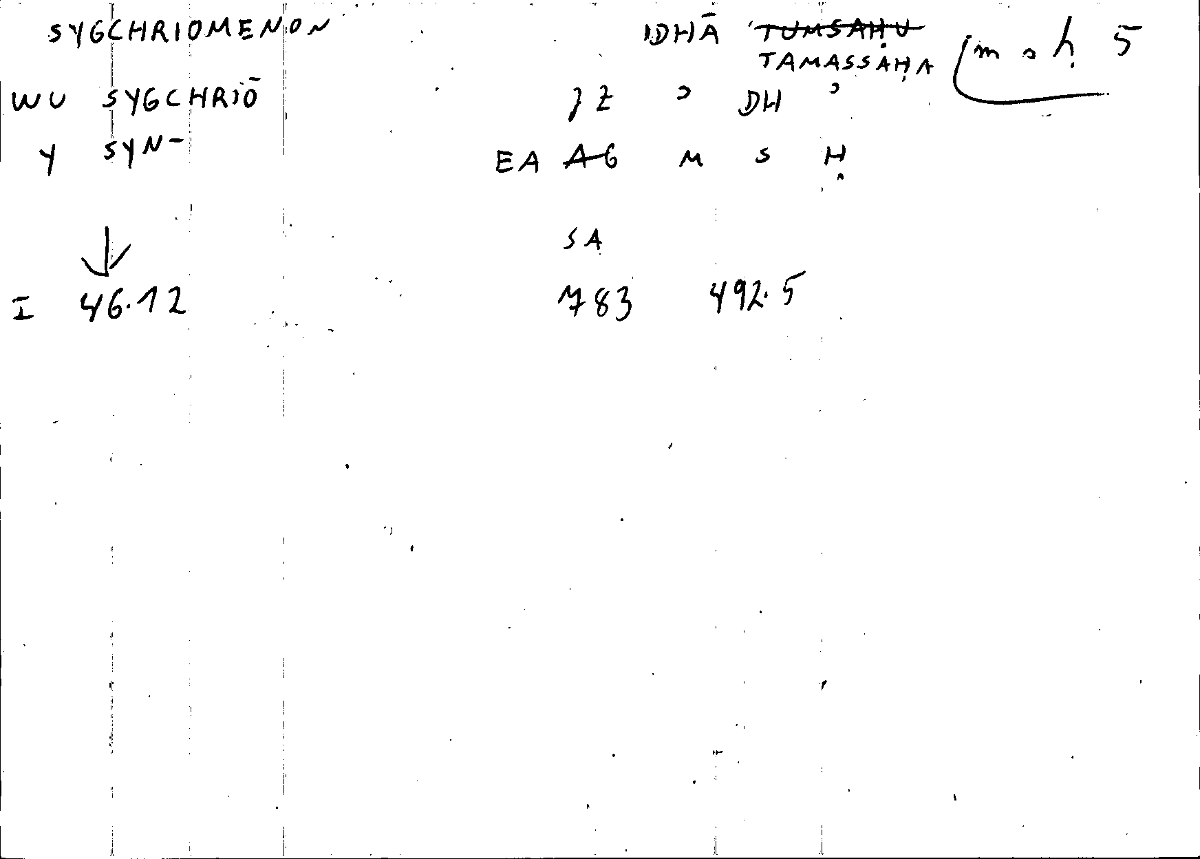 SYGCHRIOMENON IDHĀ TUMSAḤU
TAMASSAḤA m s ḥ 5
WU SYGCHRIŌ JZ ʾ DH ʾ
Y SYN- EA AG M S Ḥ
SA
I 46.12 783 492.5